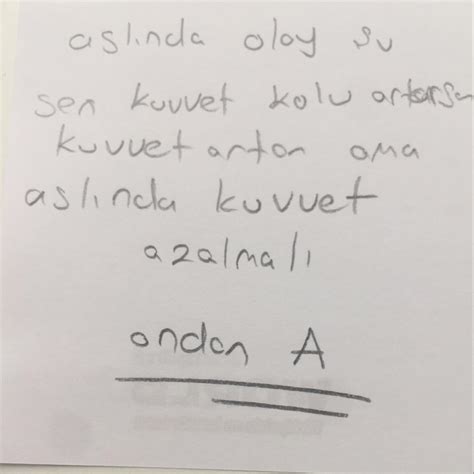 aslında olay şu
sen kuvvet kolu artarsa
kuvvet artan ama
aslında kuvvet
azalmalı
ondan A